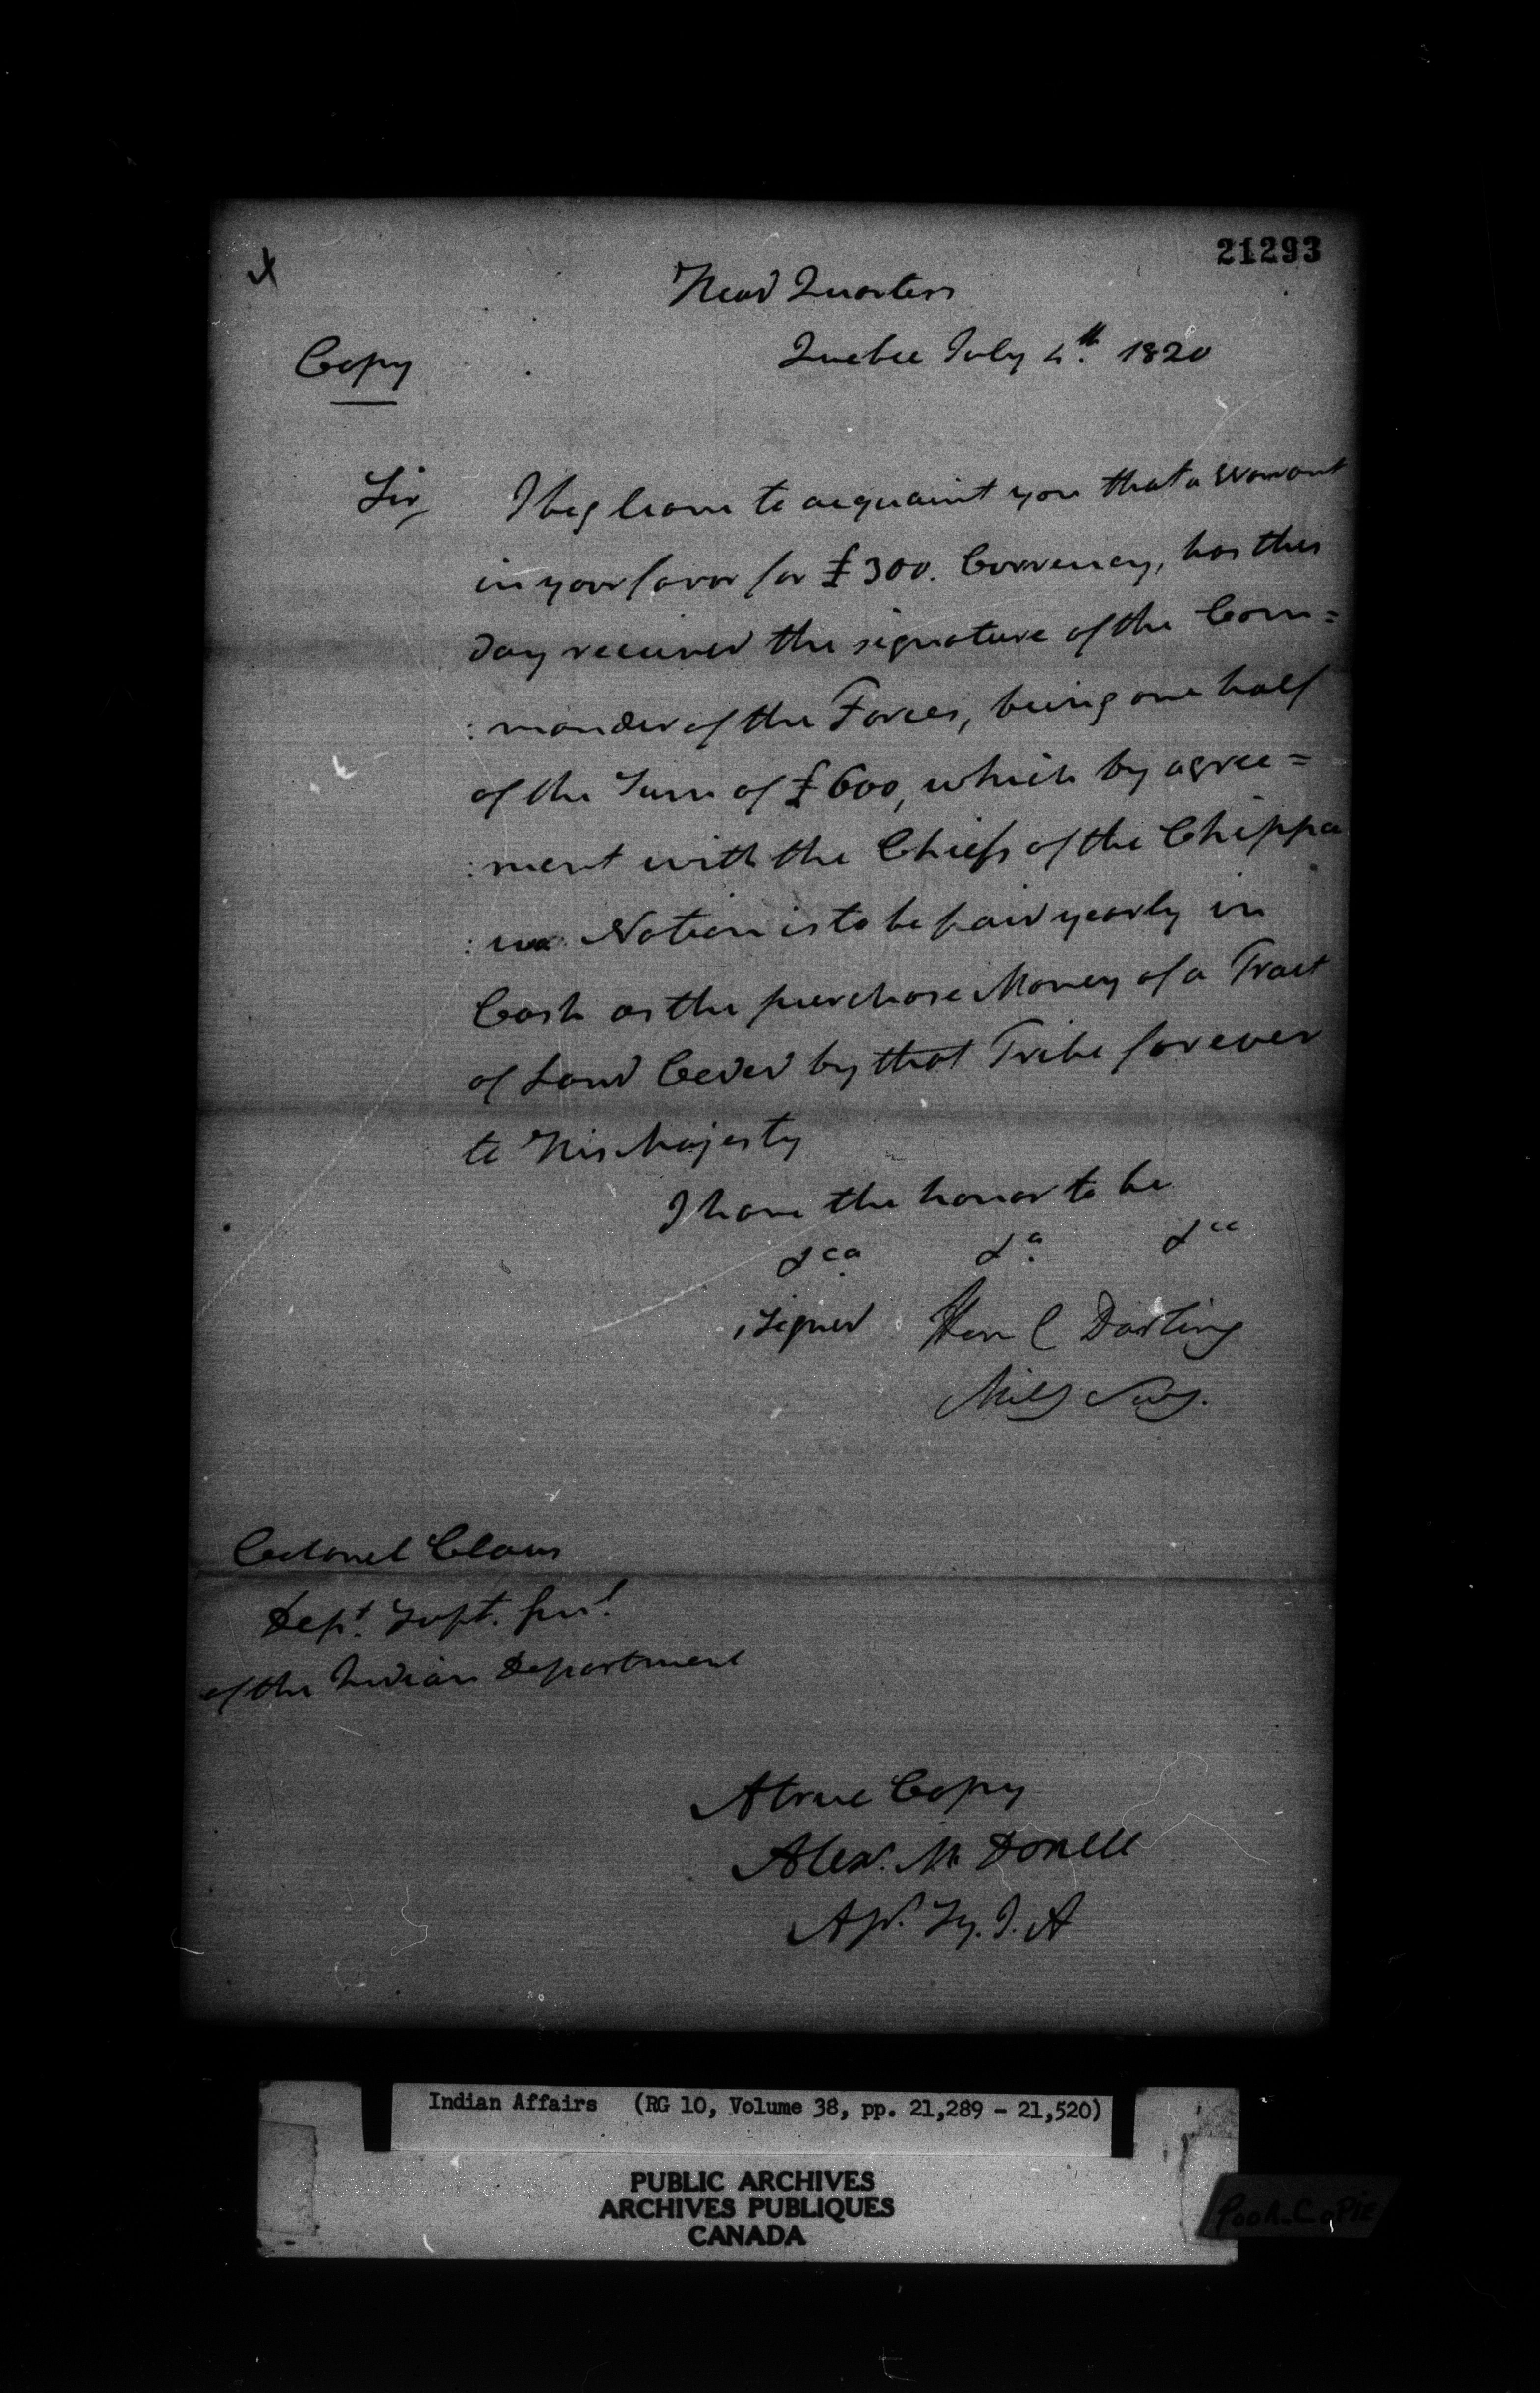 21293
Head Quarters
Quebec July 4.th 1820
Copy
Sir, I beg leave to acquaint you that a Warrant
in your favor for £300. Currency, has this
day received the signature of the Com=
:mander of the Forces, being one half
of the Sum of £600, which by agree=
:ment with the Chiefs of the Chippa
:wa Nation is to be paid yearly in
Cash as the purchase Money of a Tract
of Land Ceded by that Tribe forever
to His Majesty
I have the honor to be
&ca &a &ca
Signed Hen C Darling
Mily Secy.
Colonel Claus
Dept. Supt. Genl.
of the Indian Department
A true Copy
Alexr. McDonell
Ast. Sy. I. A
Indian Affairs (RG 10, Volume 38, pp. 21,289 - 21,520)
PUBLIC ARCHIVES
ARCHIVES PUBLIQUES
CANADA
Poor Copie